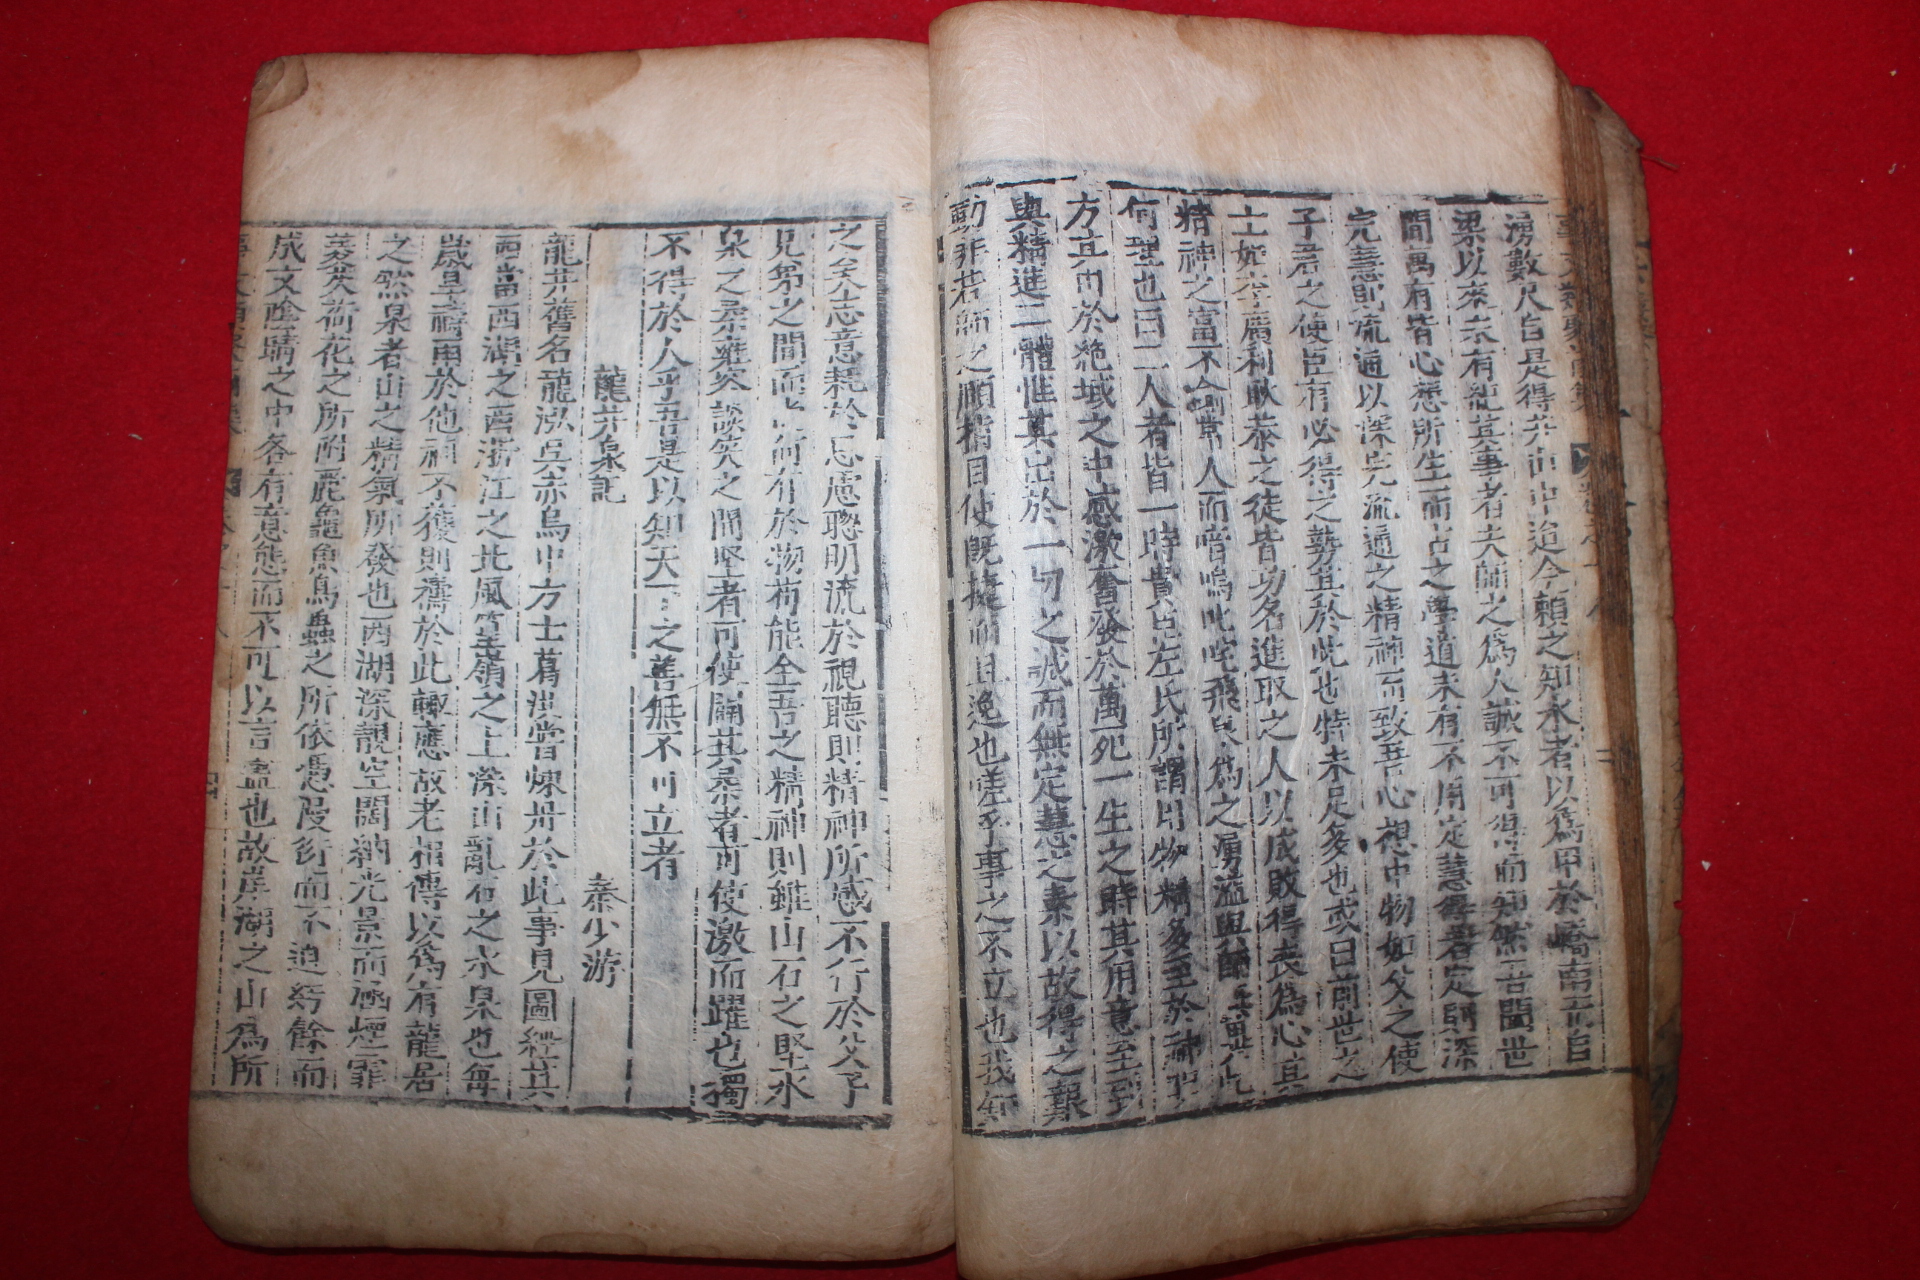 湧數尺自是得井而中迨今賴之知水者以為甲於
梁以來未有純其事者夫師之為人誠不可得而知然吾聞世
間萬有皆心想所生而古之學道未有不用定慧得者定則深
完慧則流通以深完流通之精神而致吾心想中物如父之使
子君之使臣有必得之勢其於此也特未足多也或曰前世之
士如李廣利耿恭之徒皆功名進取之人以成敗得喪為心其
精神之富不踰萬人而喑嗚叱咤飛泉為之湧溢與
何理也曰二人者皆一時貴臣左氏所謂用物精多至於神
方其困於絶域之中感激奮發於萬死一生之時其用意至到
與精進二體性其出於一切之誠而無定慧之素以故得之艱
動非若師之顧指目使旣捷而且逸也嗟乎事之不立也我知
之矣志意耗於思慮聰明流於視聽則精神所感不行於父子
兄弟之間而况有於物苟能全吾之精神則雖山石之堅水
泉之柔雍容談笑之間堅者可使闢其柔者可使激而躍也獨
不得於人乎吾是以知天下之善無不可立者
龍井泉記 秦少游
龍井舊名龍泓吳赤烏中方士葛洪嘗煉丹於此事見圖經其
西當西湖之西浙江之北風篁嶺之上深山亂石之水泉也每
歲旱禱雨於他祠不獲則禱於此輒應故老相傳以為有龍居
之然泉者山之精氣所發也西湖深靚空闊納光景而涵煙霏
菱芡荷花之所附麗龜魚鳥蟲之所依憑漫衍而不迫紆餘而
成文陰晴之中各有意態而不可以言盡也故岸湖之山為所